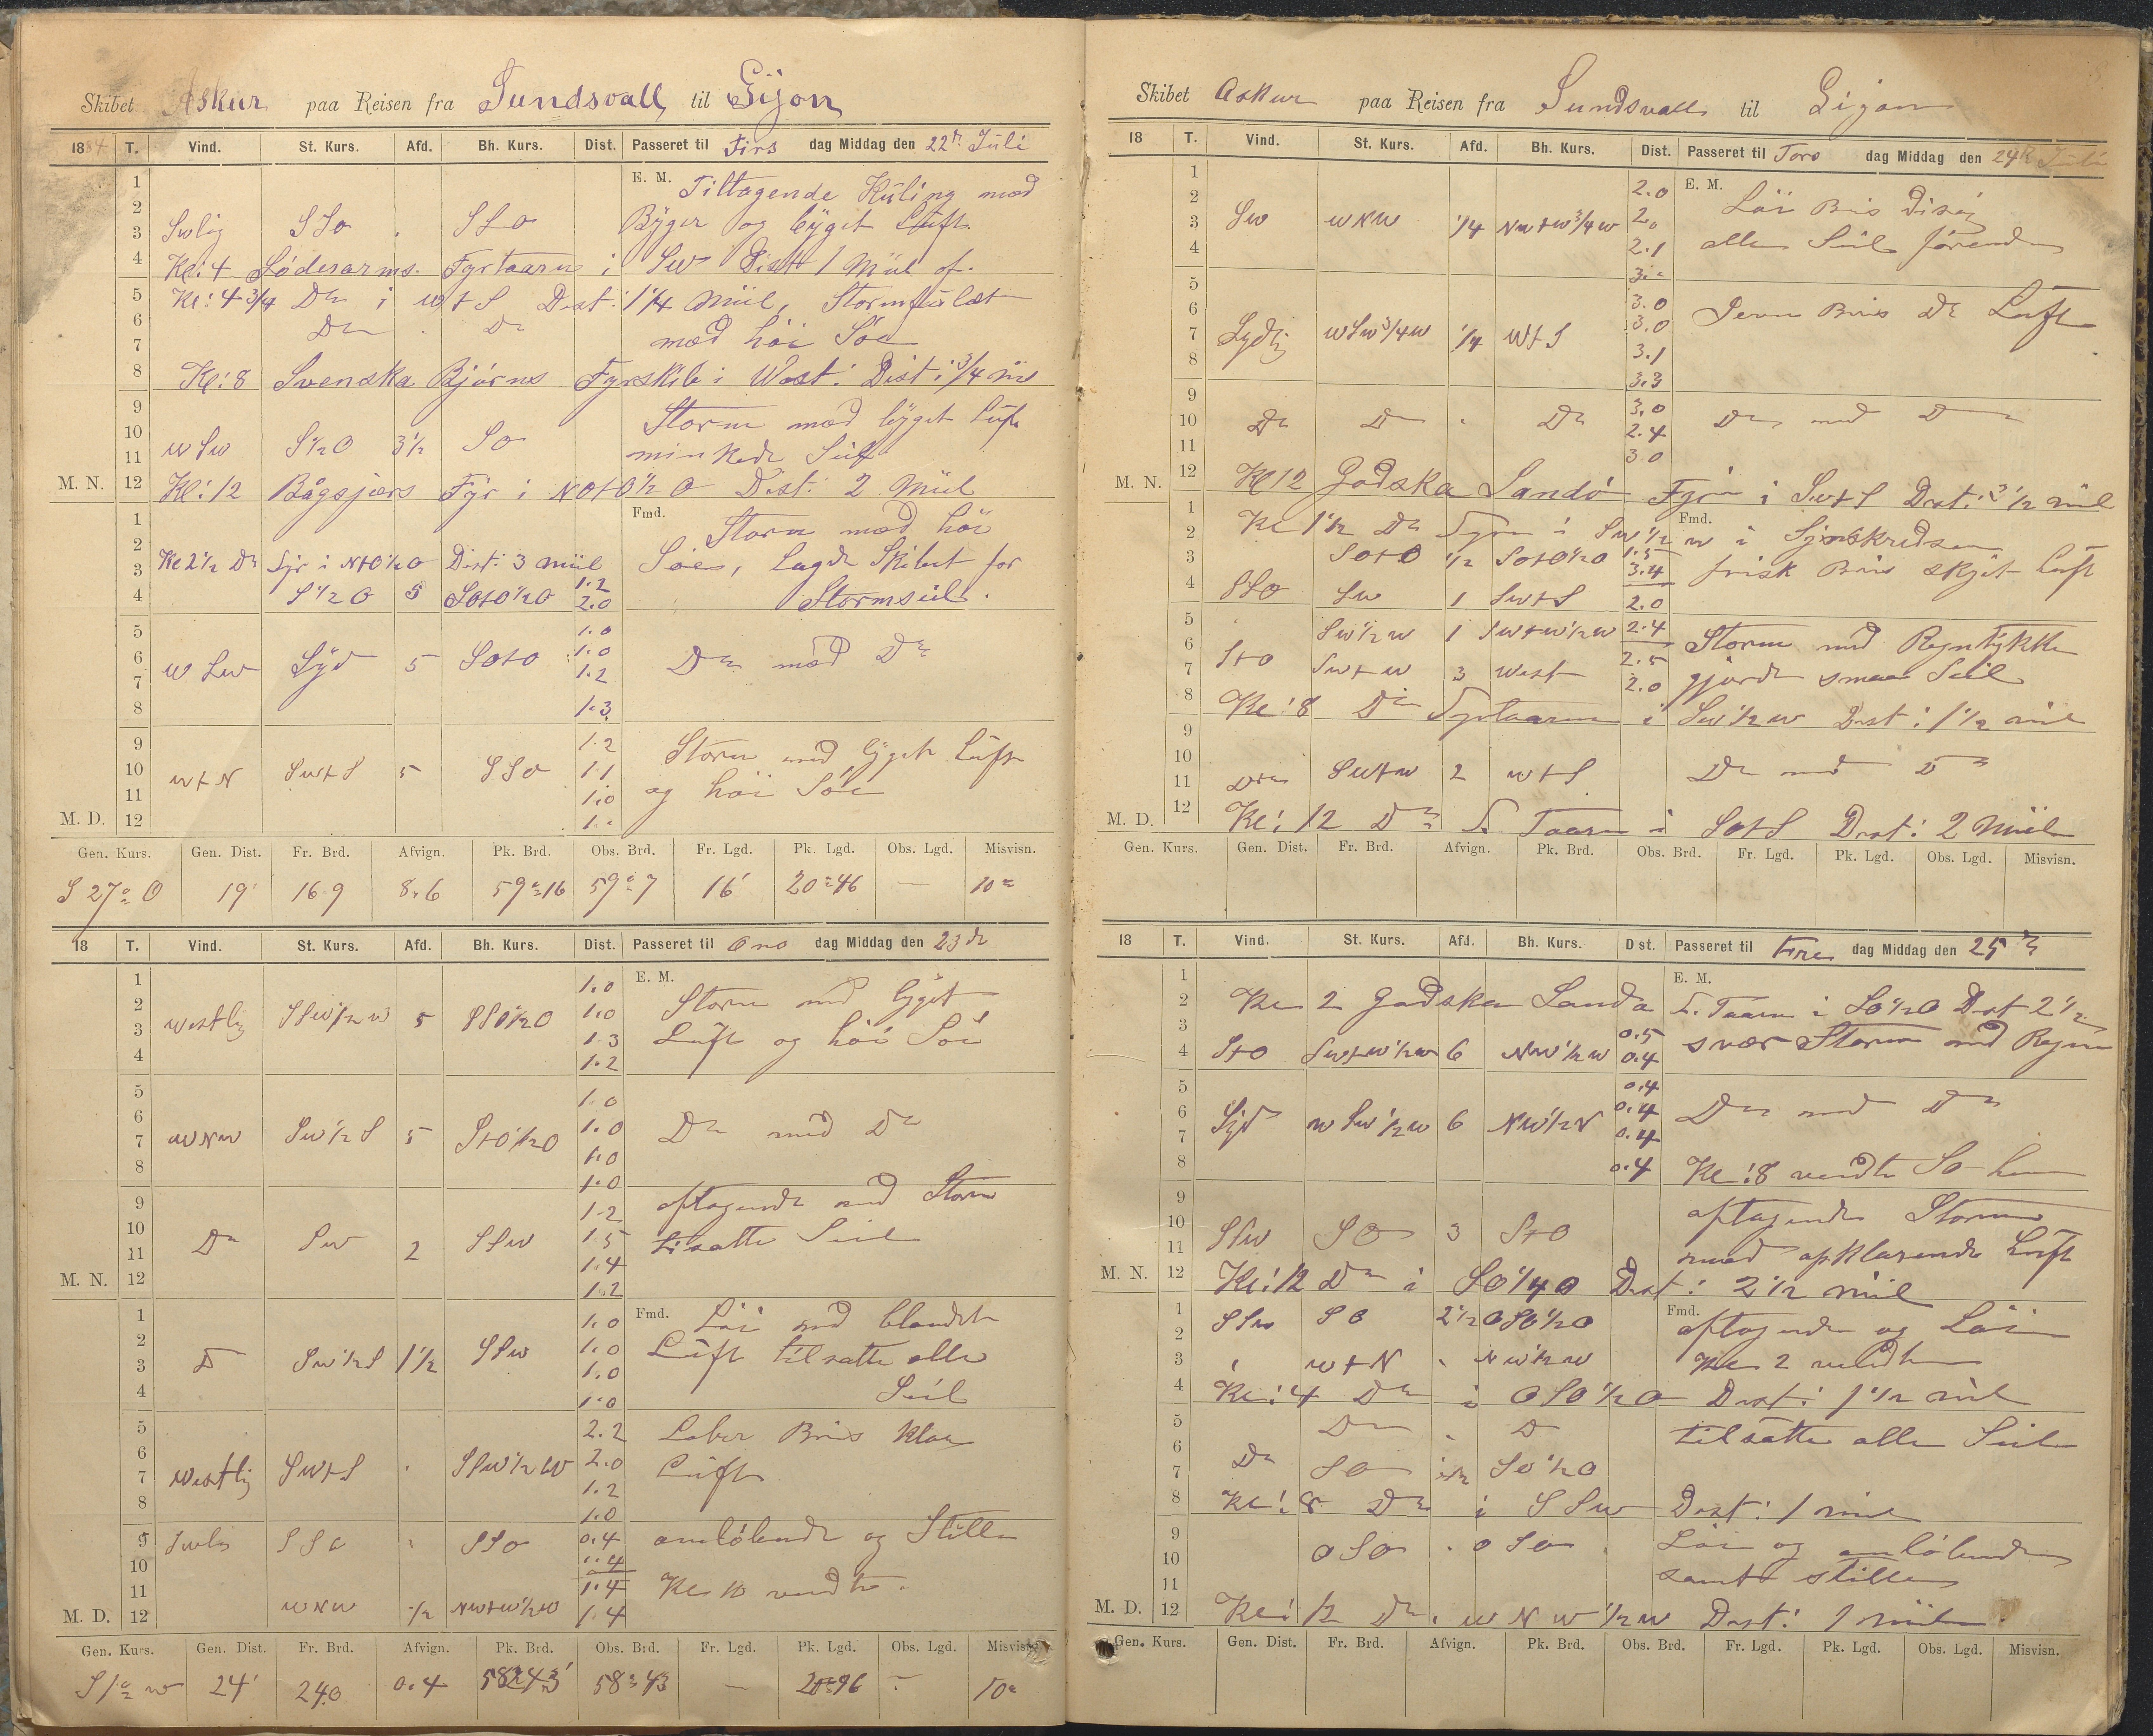 Skibet Askur paa Reisen fra Sundsvall til Gijon
1884 T. Vind. St. Kurs. Afd. Bh. Kurs. Dist. Passeret til Tirs dag Middag den 22de Juli
1 E. M. Tiltagende Kuling med
2
3 Swlig SSo . SSo Byger og byget Luft
4 Kl: 4 Söderarms Fyrtaarn i SW Dist 1 Miil of.
5 Kl: 4 3/4 Do i W t S Dist: 1 1/4 Miil, Storm
6 Do . Do
7 med höi Söe
8 Kl: 8 Svenska Björns Fyrskib i West: Dist: 3/4 M
9 Storm med byget Luft
10
11 W SW S 1/2 O 3 1/2 SO minkede Seil
M. N. 12 Kl: 12 Bågsjærs Fyr i NOtO 1/2 O Dist: 2 Miil
1 Fmd. Storm med höi
2
3 Kl 2 1/2 Do Fyr i NtO 1/2 O Dist: 3 Miil Söe, Lagde Skibet for
4 S 1/2 O 5 SOtO 1/2 O 1.2 2.0 Stormseil.
5 1.0
6 W SW Syd 5 SOtO 1.0 Do med Do
7 1.2
8 1.3
9 1.2 Storm med byget Luft
10 W t N SWtS 5 SSO 1.1
11 1.0 og höi Söe
M. D. 12 1.
Gen. Kurs. Gen. Dist. Fr. Brd. Afvign. Pk. Brd. Obs. Brd. Fr. Lgd. Pk. Lgd. Obs. Lgd. Misvisn.
S 27° O 19' 16.9 8.6 59°16 59°7 16' 20°46 — 10°
18 T. Vind. St. Kurs. Afd. Bh. Kurs. Dist. Passeret til Ons dag Middag den 23de
1 1.0 E. M.
2 Westlig SSW 1/2 W 5 SSO 1/2 O 1.0 Storm med byget
3 1.3 Luft og höi Söe
4 1.2
5 1.0
6 1.0
7 WNW SW 1/2 S 5 StO 1/2 O 1.0 Do med Do
8 1.0
9 1.2 aftagende med Storm
10 Do SW 2 SSW 1.5 tilsatte Seil
11 1.4
M. N. 12 1.2
1 1.0 Fmd. Löi med blandet
2 1.0 Luft tilsatte alle
3 D SW 1/2 S 1 1/2 SSW 1.0
4 1.0 Seil
5 2.2 Laber Bris Klar
6 2.0 Luft
7 Westlig SWtS . SSW 1/2 W 1.2
8 1.0
9 SSO . SSO 0.4 omlöbende og Stille
10
11 1.4 Kl 10 vendte.
M. D. 12 WNW 1/2 NWtW 1/2 W 1.4
Gen. Kurs. Gen. Dist. Fr. Brd. Afvign. Pk. Brd. Obs. Brd. Fr. Lgd. Pk. Lgd. Obs. Lgd. Misvisn.
S 1° W 24' 24.0 0.4 58°43' 58°43 — — 10°
Skibet Askur paa Reisen fra Sundsvall til Gijon
18 T. Vind. St. Kurs. Afd. Bh. Kurs. Dist. Passeret til Tors dag Middag den 24de Juli
1 2.0 E. M. Löi Bris disig
2 2.0
3 SW WNW 1/4 NWtW 3/4 W 2.1 alle Seil förende
4
5 3.0 Jevn Bris Do Luft
6 3.0
7 Sydlig WSW 3/4 W 1/4 WtS 3.1
8 3.3
9 3.0
10 Do Do . Do 2.4 Do med Do
11 3.0
M. N. 12 Kl 12 Godska Sandö Fyr i SWtS Dist: 3 1/2 Miil
1 Kl 1 1/2 Do Fyr i SW 1/2 W i Synskredsen
2 Fmd.
3 SOtO 1/2 SOtO 1/2 O 1.5 3.4 frisk Bris skyet Luft
4 SSO SW 1 SWtS 2.0
5 SW 1/2 W 1 SWtW 1/2 W 2.4 Storm med Regntykke
6
7 StO SWtW 3 West 2.5 2.0 gjorde smaa Seil
8 Kl: 8 Do Fyrtaarn i SW 1/2 W Dist: 1 1/2 Miil
9
10
11 Do SWtW 2 WtS Do med Do
M. D. 12 Kl: 12 Do F. Taarn i SOtS Dist: 2 Miil
Gen. Kurs. Gen. Dist. Fr. Brd. Afvign. Pk. Brd. Obs. Brd. Fr. Lgd. Pk. Lgd. Obs. Lgd. Misvisn.
18 T. Vind. St. Kurs. Afd. Bh. Kurs. Dist. Passeret til Fre dag Middag den 25de
1 E. M.
2 Kl 2 Godska Sandö F. Taarn i SO 1/2 O Dist 2 1/2
3 0.5
4 StO SWtW 1/2 W 6 NW 1/2 W 0.4 svær Storm med Regn
5 0.4
6 Syd W SW 1/2 W 6 NW 1/2 N 0.4 Do med Do
7 0.4
8 0.4 Kl: 8 vendte SO
9 aftagende Storm
10 SSW SO 3 StO
11 med opklarende Luft
M. N. 12 Kl: 12 Do i SO 1/4 O Dist: 2 1/2 Miil
1 SSW SO 2 1/2 OSO 1/2 O Fmd. aftagende og Löi
2
3 WtN . NW 1/2 W Kl 2 vendte
4 Kl: 4 Do i OSO 1/2 O Dist: 1 1/2 Miil
5 Do . D tilsatte alle Seil
6
7 Do SO SO 1/2 O
8 Kl: 8 Do i SSW Dist: 1 Miil
9 OSO . OSO Löi og omlöbende
10
11 samt stille
M. D. 12 Kl: 12 Do. W N W 1/2 W Dist: 1 Miil.
Gen. Kurs. Gen. Dist. Fr. Brd. Afvign. Pk. Brd. Obs. Brd. Fr. Lgd. Pk. Lgd. Obs. Lgd. Misvisn.